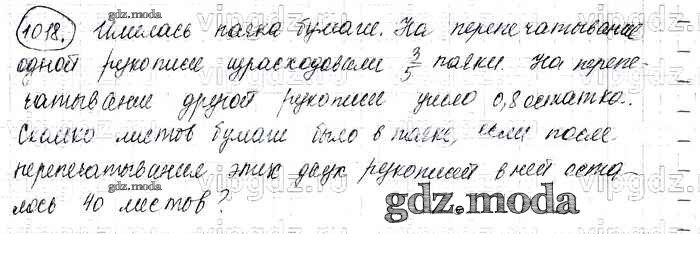 1018. Имелась пачка бумаги. На перепечатывание
одной рукописи израсходовали 3/5 пачки. На перепе-
чатывание другой рукописи ушло 0,8 остатка.
Сколько листов бумаги было в пачке, если после
перепечатывания этих двух рукописей в ней оста-
лось 40 листов?
gdz.moda
gdz.moda
gdz.moda
gdz.moda
gdz.moda